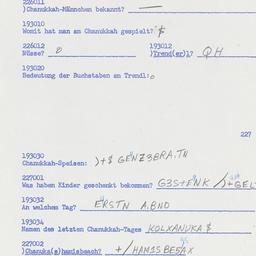 226011
)Chanukkah-Männchen bekannt? —
193010
Womit hat man am Chanukkah gespielt? $
226012 193012
Nüsse? 0 )Trend(er)l? QH
193020
Bedeutung der Buchstaben am Trendl: 0
227
193030
Chanukkah-Speisen: )+$ GENZ3BRA.TN
227001
Was haben Kinder geschenkt bekommen? G3S+ENK )+GEL
193032
An welchem Tag? ERSTN A.BND
193034
Namen des letzten Chanukkah-Tages KOLXANUKA $
227002
)Chanuka(s)hamisbeach? +/HAM1SBE5AX